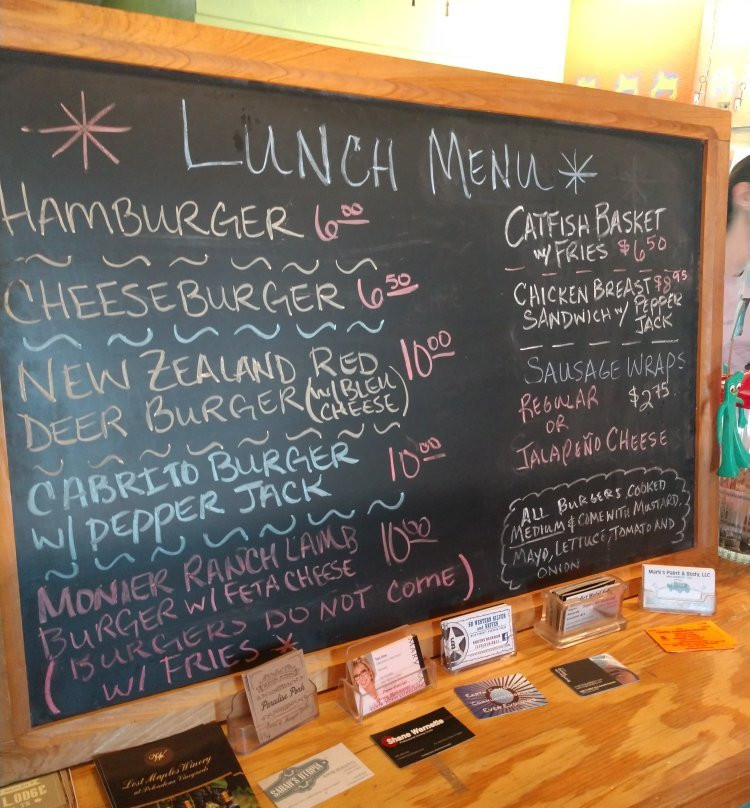 LUNCH MENU
HAMBURGER 6.00
CHEESEBURGER 6.50
NEW ZEALAND RED 10.00
DEER BURGER (W/BLEU
CHEESE)
CABRITO BURGER 10.00
W/ PEPPER JACK
MONIER RANCH LAMB 10.00
BURGER W/ FETA CHEESE
(BURGERS DO NOT COME)
W/ FRIES
CATFISH BASKET
W/ FRIES $6.50
CHICKEN BREAST $8.95
SANDWICH W/ PEPPER
JACK
SAUSAGE WRAPS
REGULAR $2.75
OR
JALAPEÑO CHEESE
ALL BURGERS COOKED
MEDIUM & COME WITH MUSTARD,
MAYO, LETTUCE, TOMATO AND
ONION
Mark's Paint & Body, LLC
Paradise Pork
Shane Wernette
Lost Maples Winery
at Polvadeau Vineyards
SARAH'S UTOPIA
LODGE